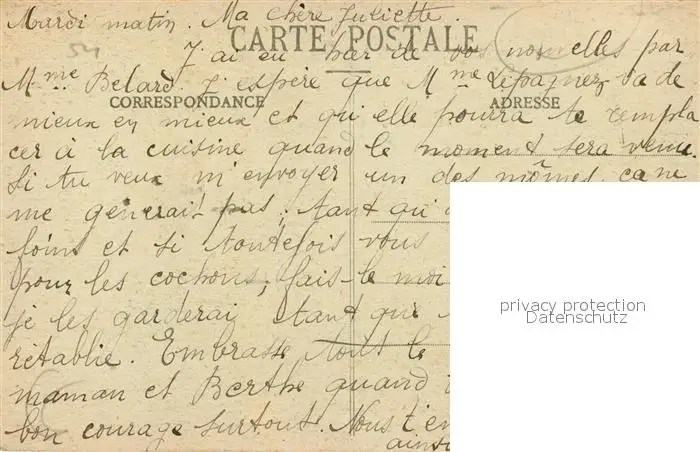 Mardi matin. Ma chère Juliette.
CARTE POSTALE
J'ai eu hier de vos nouvelles par
Mme Belard. J'espère que Mme Lepagnez va de
CORRESPONDANCE
ADRESSE
mieux en mieux et qu'elle pourra te rempla
cer à la cuisine quand le moment sera venu.
Si tu veux m'envoyer un des mômes, ca ne
me generait pas, tant qu'
foins et si toutefois vous
pour les cochons, fais-le moi
je les garderai tant que
rétablie. Embrasse tout le
maman et Berthe quand
bon courage surtout. Nous t'en
ains
privacy protection
Datenschutz